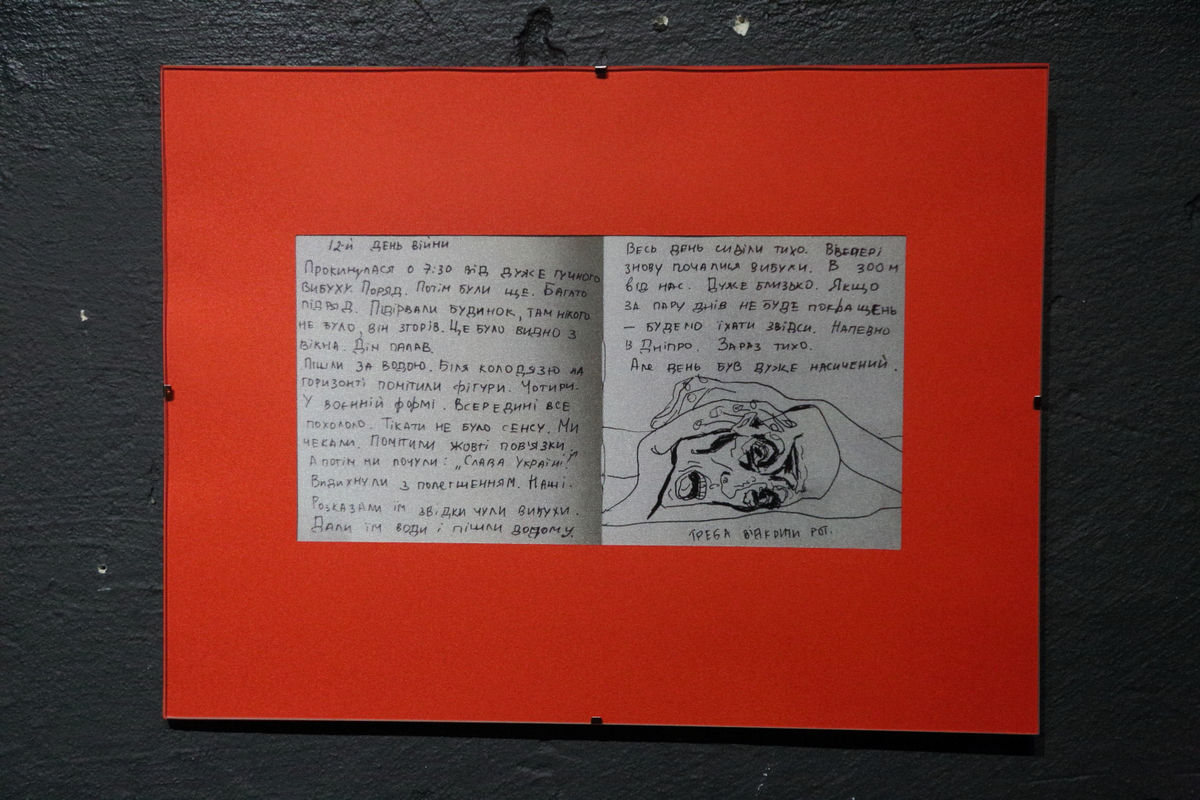 12-й день війни
Прокинулася о 7:30 від дуже гучного
вибуху. Поряд. Потім були ще. Багато
підряд. Підірвали будинок, там нікого
не було, він згорів. Це було видно з
вікна. Дім палав.
Пішли за водою. Біля колодязю на
горизонті помітили фігури. Чотири.
У воєнній формі. Всередині все
похололо. Тікати не було сенсу. Ми
чекали. Помітили жовті пов'язки.
А потім ми почули: „Слава Україні!"
Видихнули з полегшенням. Наші.
Розказали їм звідки чули вибухи.
Дали їм води і пішли додому.
Весь день сиділи тихо. Ввечері
знову почалися вибухи. В 300 м
від нас. Дуже близько. Якщо
за пару днів не буде покращень
– будемо їхати звідси. Напевно
в Дніпро. Зараз тихо.
Але день був дуже насичений.
треба відкрити рот.